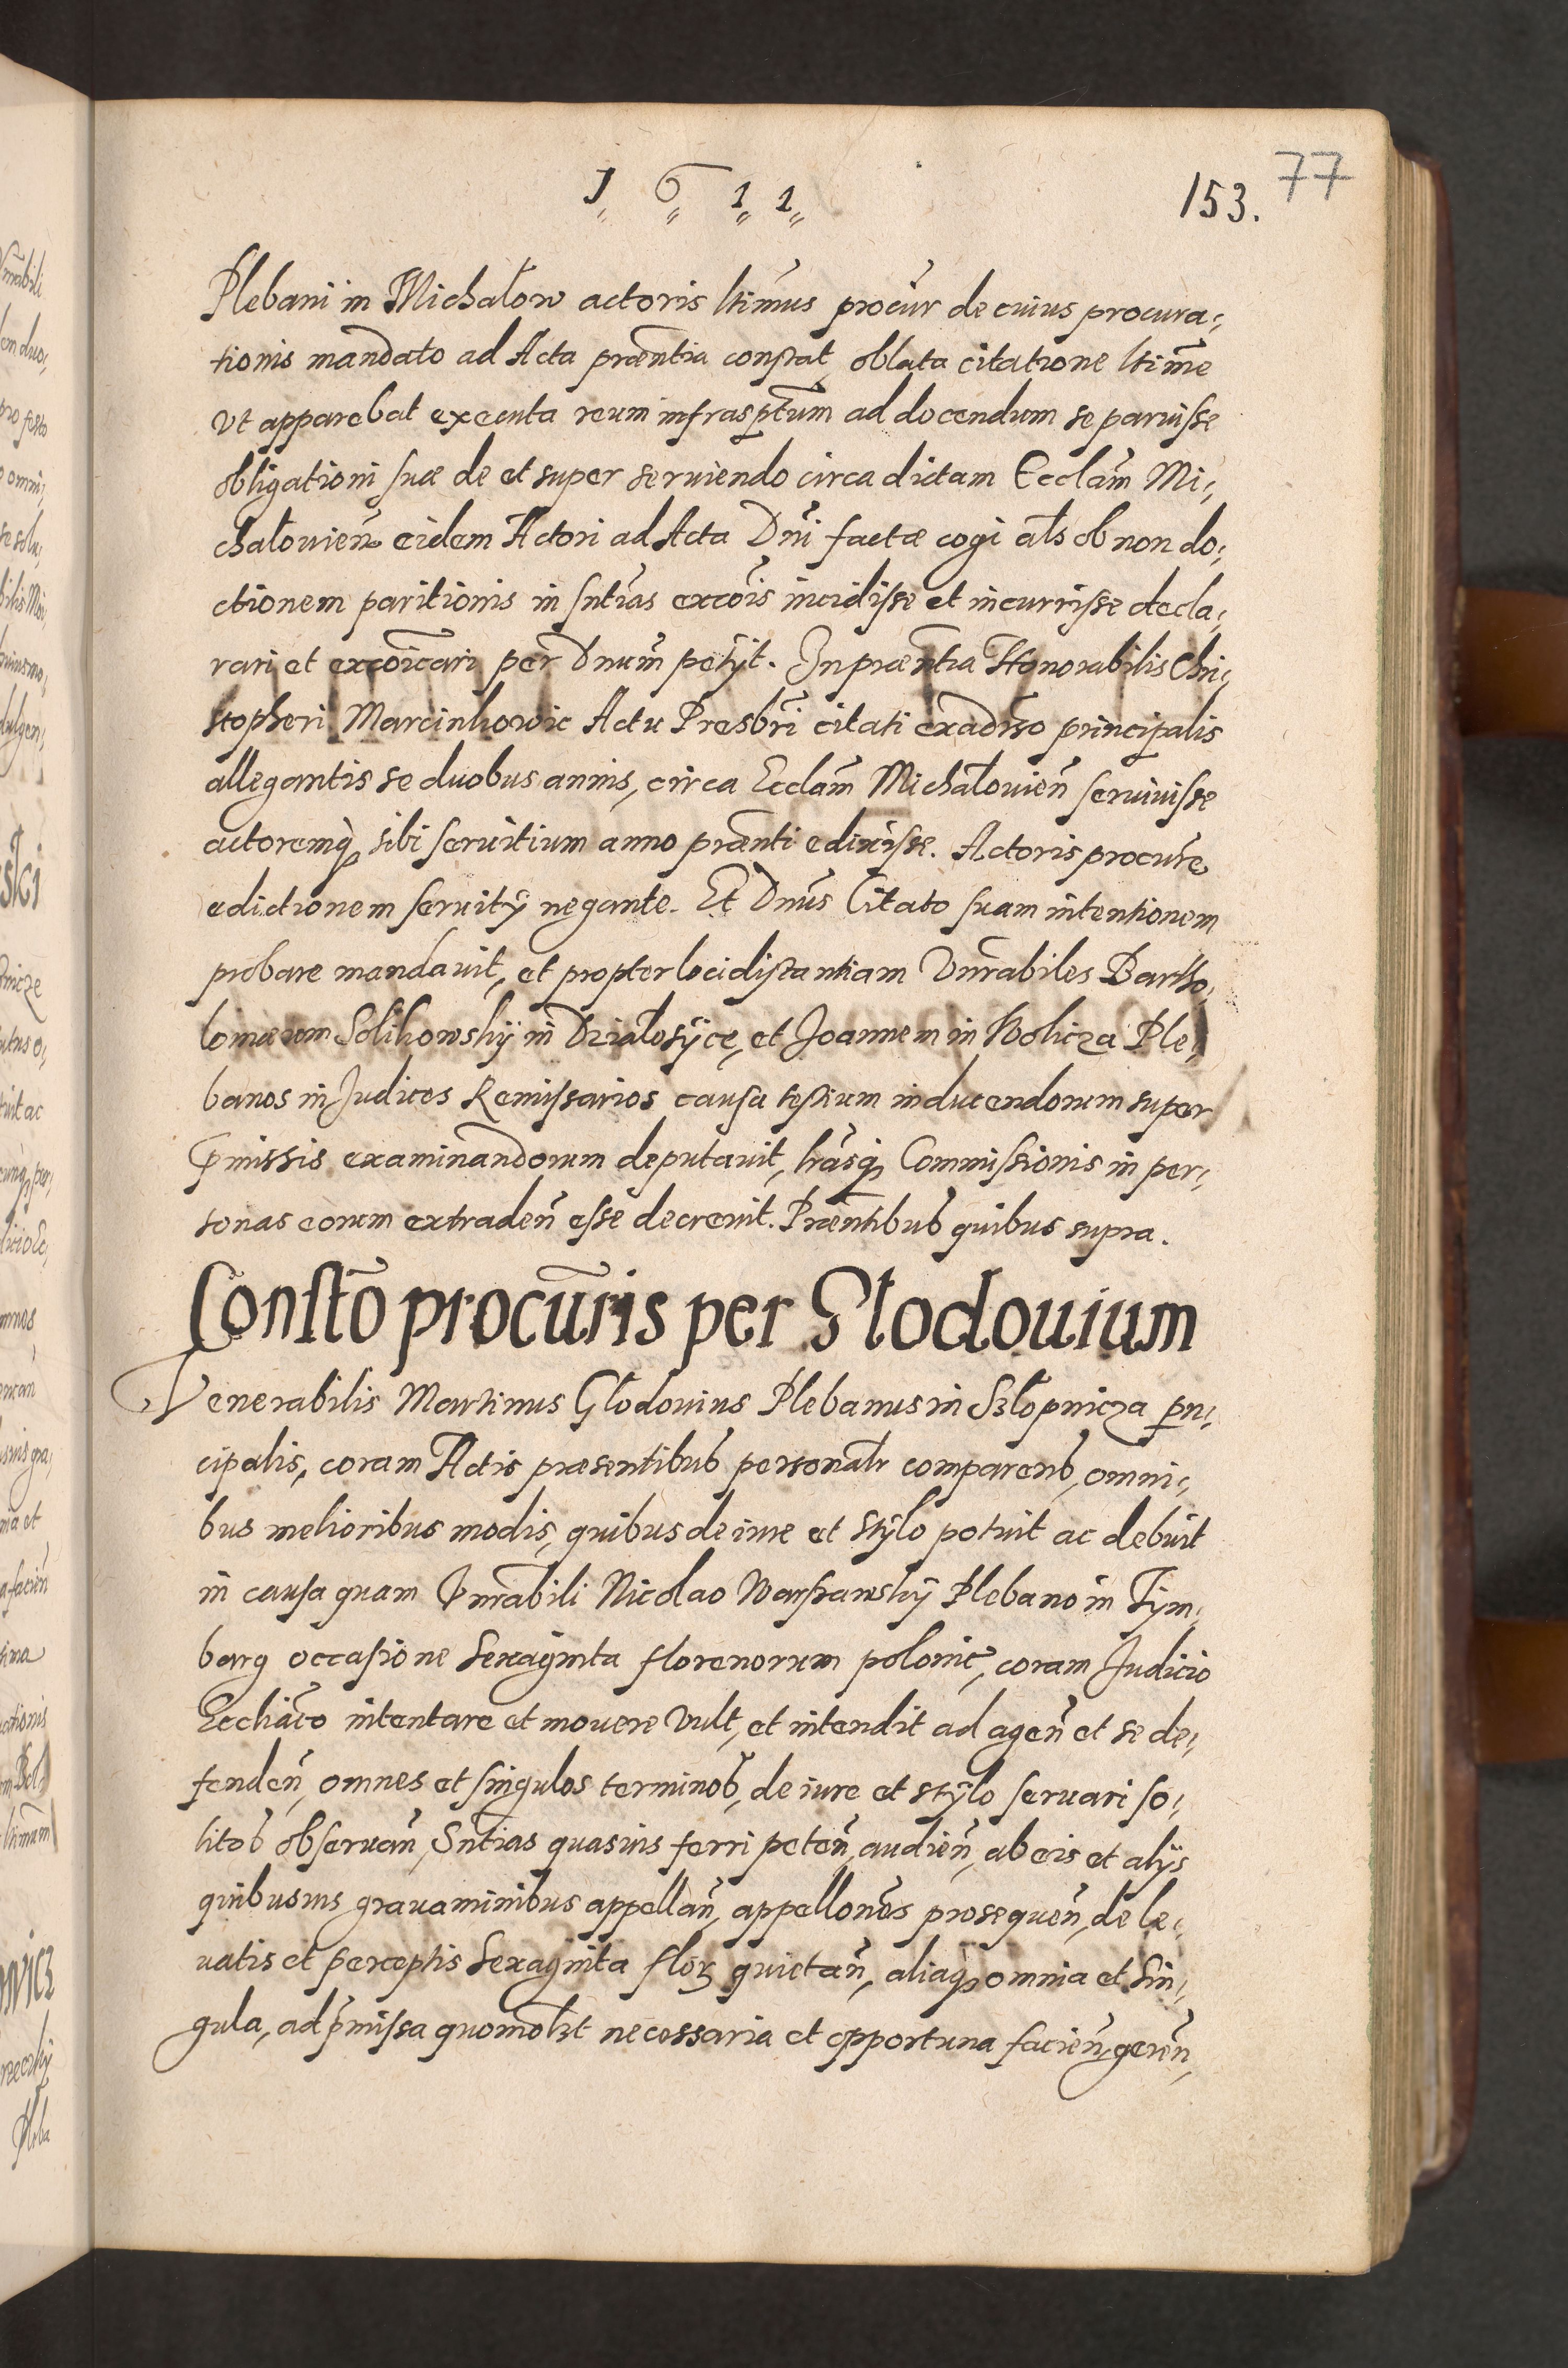 1611
153. 77
Plebani in Michałow actoris ltimus procur de cuius procura-
tionis mandato ad Acta præntia constat, oblata citatione ltime
ut apparebat executa reum infrasptum ad docendum se paruisse
obligationi suæ de et super serviendo circa dictam Ecclam Mi-
chałovien eidem Actori ad Acta Dni factæ cogi als ob non do-
ctionem paritionis in sntias excois incidisse et incurrisse decla-
rari et excoicari per Dnum petijt. In præntia Honorabilis Chri-
stopheri Marcinkowic Actu Presbri citati ex adrso principalis
allegantis se duobus annis, circa Ecclam Michałovien servivisse
actoremq sibi servitium anno prænti edixisse. Actoris procure
edictionem servitÿ negante. Et Dnus Citato suam intentionem
probare mandavit, et propter loci distantiam Vnrabiles Bartho-
lomæum Solikowskÿ in Działosÿce, et Joannem in Kolicza Ple-
banos in Judices Remissarios causa testium inducendorum super
pmissis examinandorum deputavit, lrasq Commissionis in per-
sonas eorum extraden esse decrevit. Præntibus quibus supra.
Constto procuris per Głodovium
Venerabilis Martinus Głodovius Plebanus in Słopnicza prin-
cipalis, coram Actis præsentibus personalr comparens, omni-
bus melioribus modis, quibus de iure et stÿlo potuit ac debuit
in causa quam Vnrabili Nicolao Warszawskÿ Plebano in Tÿm-
barg occasione Sexaginta florenorum polonic, coram Judicio
Eccliaco intentare et movere vult, et intendit ad agen et se de-
fenden, omnes et singulos terminos, de iure et stÿlo servari so-
litos observan, Sntias quasvis ferri peten, audien, ab eis et alÿs
quibusvis gravaminibus appellan, appellones prosequen, de le-
vatis et perceptis Sexaginta flor quietan, aliaq omnia et Sin-
gula, ad pmissa quomolbt necessaria et opportuna facien, geren,